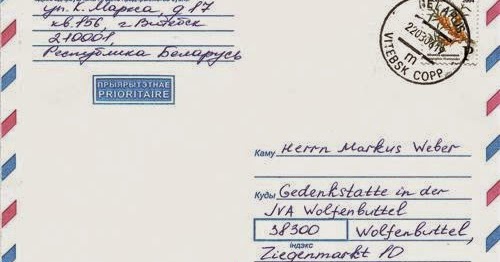 ул. К. Маркса, д. 17
кв. 156, г. Витебск
210001,
Республика Беларусь
BELARUS
VITEBSK COPP
m
P
ПРЫЯРЫТЭТНАЕ
PRIORITAIRE
Каму Herrn Markus Weber
Куды Gedenkstatte in der
JVA Wolfenbuttel
38300 Wolfenbuttel,
Індэкс
Ziegenmarkt 10